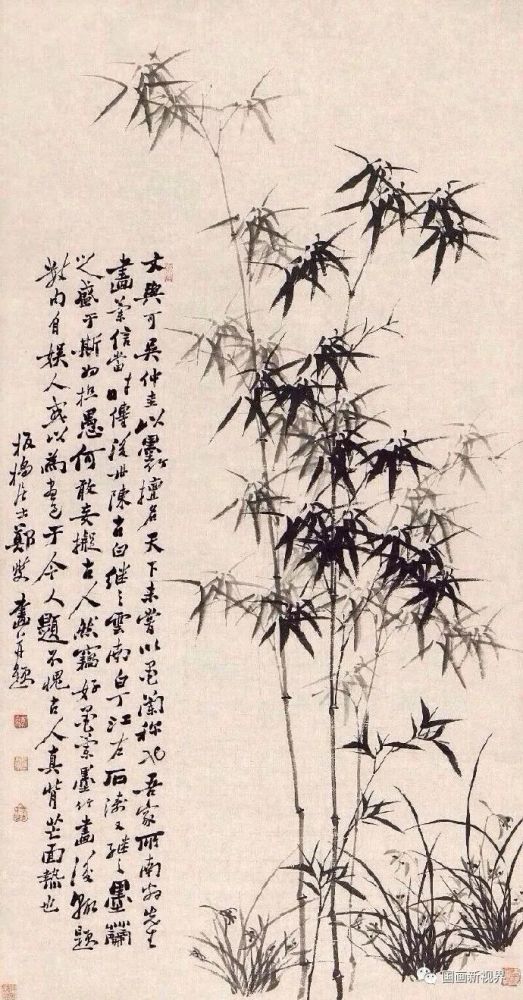 文與可吳仲圭以墨竹擅名天下未嘗以墨蘭称也吾家所南翁先生
畫蘭信當时後此陳古白继之雲南白丁江左石涛又继之墨蘭
之盛于斯为极愚何敢妄擬古人然竊好墨蘭墨竹畫後輒題
數自娱人或以為畫于今人題不愧古人真背芒面熱也
板橋居士鄭燮畫并題
国画新视界